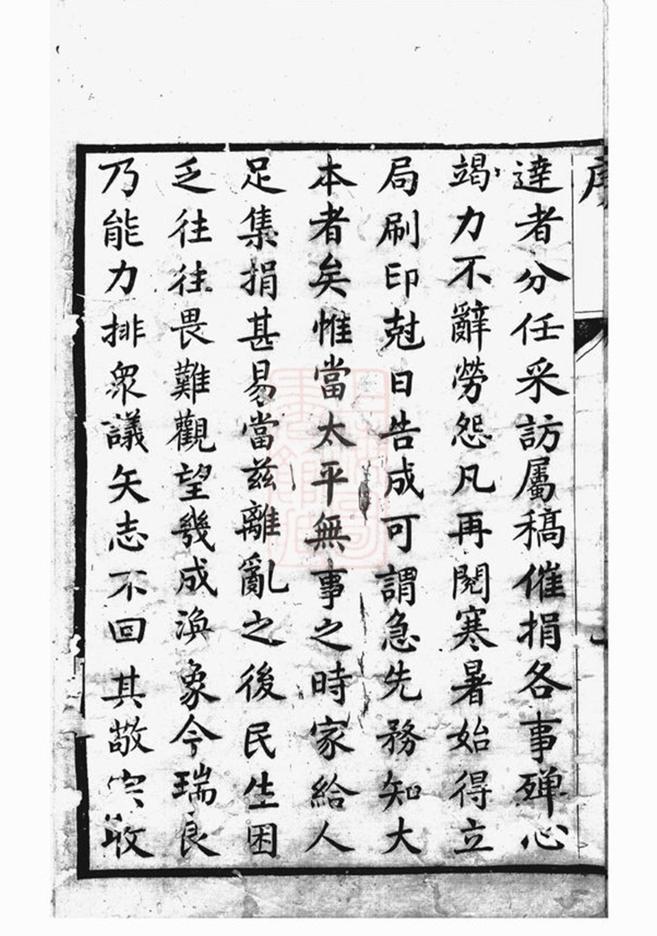 達者分任采訪屬稿催捐各事殫心
竭力不辭勞怨凡再閱寒暑始得立
局刷印尅日告成可謂急先務知大
本者矣惟當太平無事之時家給人
足集捐甚易當茲離亂之後民生困
乏往往畏難觀望幾成渙象今瑞良
乃能力排衆議矢志不回其敬宗收